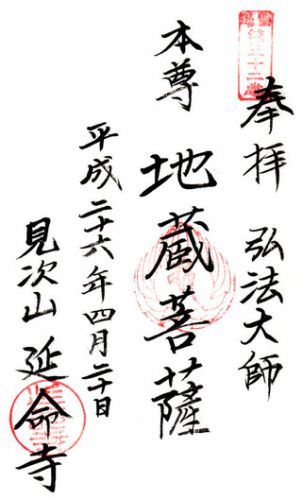 奉拝 弘法大師
本尊 地蔵菩薩
平成二十六年四月二十日
見次山 延命寺